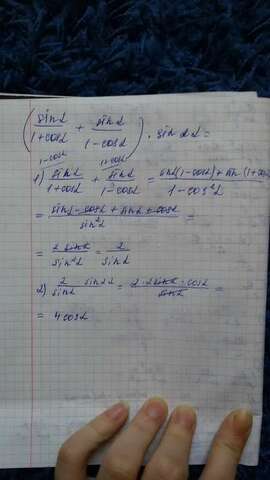 (sinα/(1+cosα) + sinα/(1-cosα)) · sin2α =
1-cosα 1+cosα
1) sinα/(1+cosα) + sinα/(1-cosα) = (sinα(1-cosα)+sinα(1+cosα))/(1-cos²α)
= (sinα-cosα+sinα+cosα)/(sin²α) =
= (2 sinα)/(sin²α) = 2/(sinα)
2) 2/(sinα) · sin2α = (2·2sinα·cosα)/(sinα) =
= 4cosα